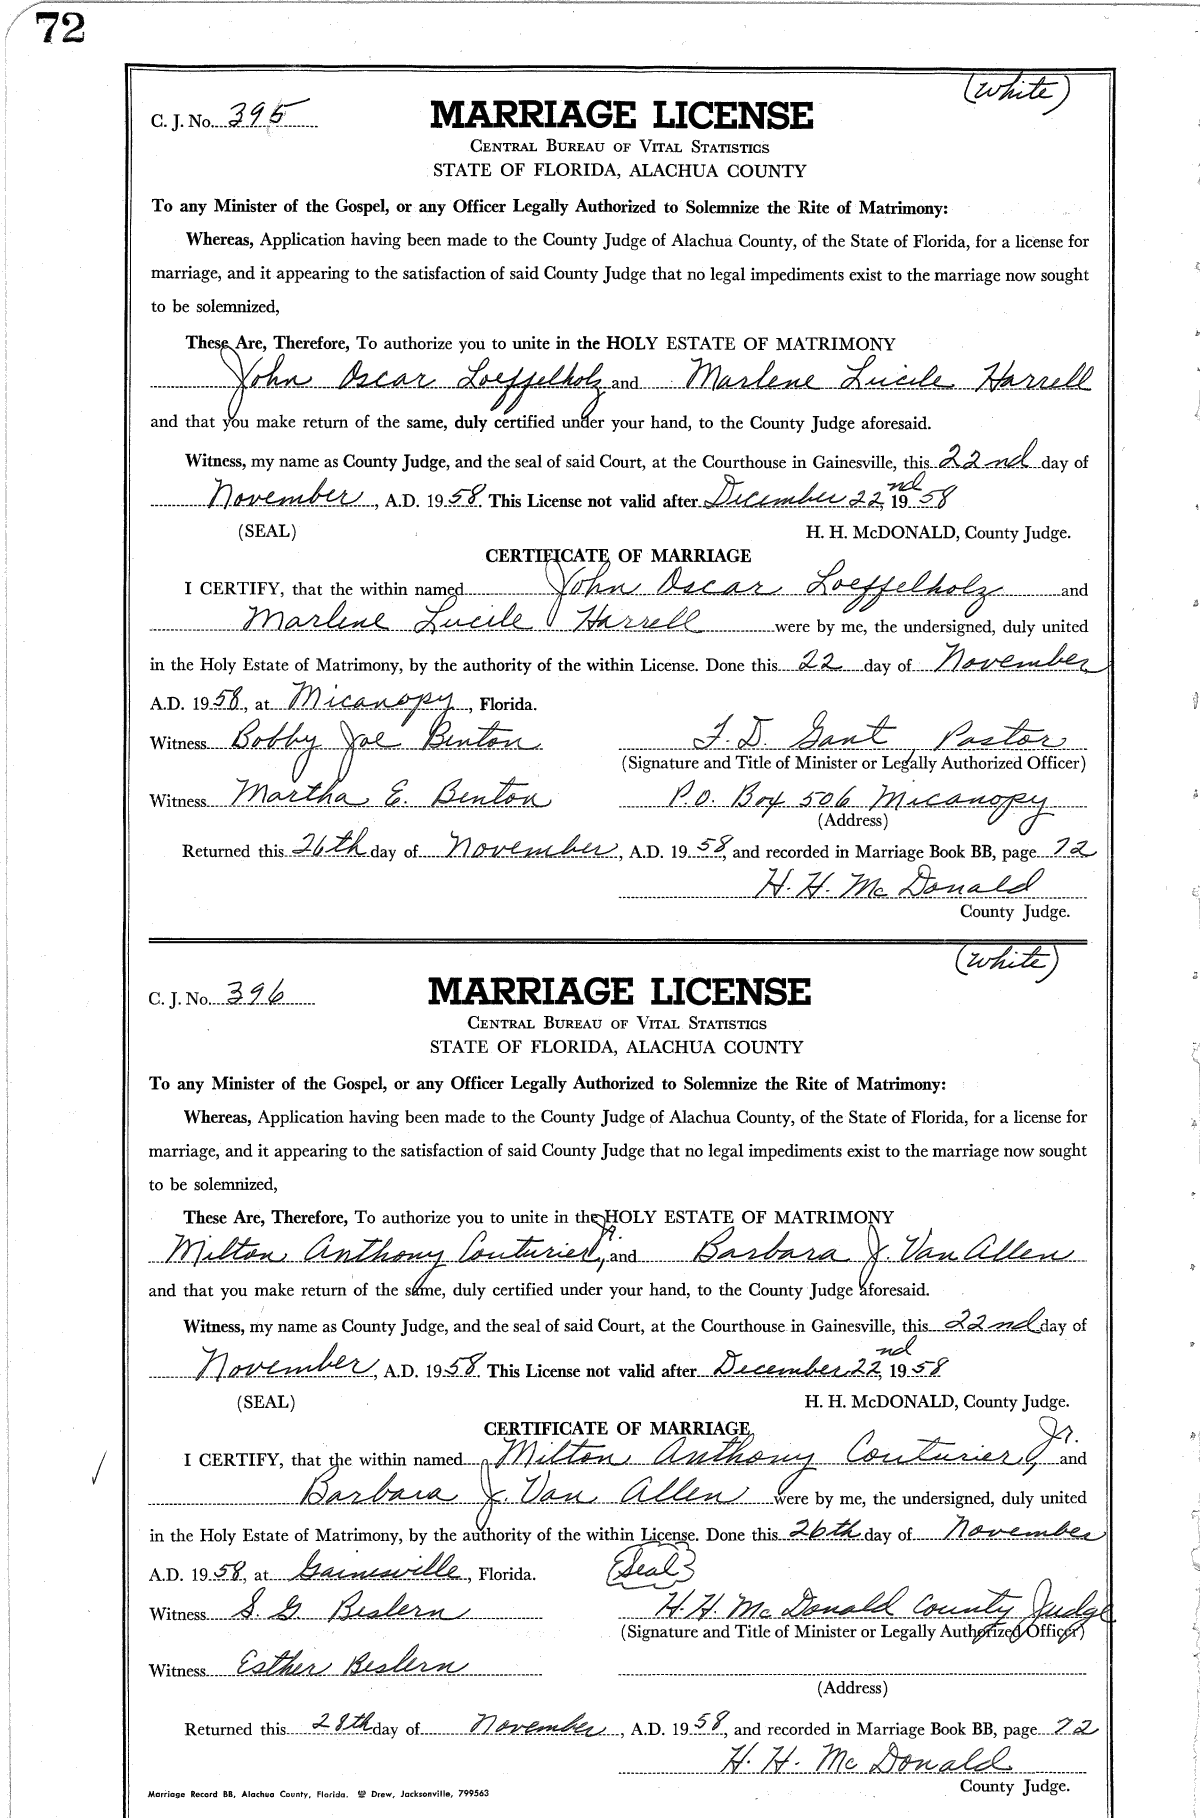 72
(White)
C. J. No. 395
MARRIAGE LICENSE
CENTRAL BUREAU OF VITAL STATISTICS
STATE OF FLORIDA, ALACHUA COUNTY
To any Minister of the Gospel, or any Officer Legally Authorized to Solemnize the Rite of Matrimony:
Whereas, Application having been made to the County Judge of Alachua County, of the State of Florida, for a license for
marriage, and it appearing to the satisfaction of said County Judge that no legal impediments exist to the marriage now sought
to be solemnized,
These Are, Therefore, To authorize you to unite in the HOLY ESTATE OF MATRIMONY
John Oscar Loeffelholz and Marlene Lucile Harrell
and that you make return of the same, duly certified under your hand, to the County Judge aforesaid.
Witness, my name as County Judge, and the seal of said Court, at the Courthouse in Gainesville, this 22nd day of
November, A.D. 1958. This License not valid after December 22nd, 1958
(SEAL) H. H. McDONALD, County Judge.
CERTIFICATE OF MARRIAGE
I CERTIFY, that the within named John Oscar Loeffelholz and
Marlene Lucile Harrell were by me, the undersigned, duly united
in the Holy Estate of Matrimony, by the authority of the within License. Done this 22 day of November
A.D. 1958, at Micanopy, Florida.
Witness Bobby Joe Benton F. D. Gant, Pastor
(Signature and Title of Minister or Legally Authorized Officer)
Witness Martha E. Benton P.O. Box 506 Micanopy
(Address)
Returned this 26th day of November, A.D. 1958, and recorded in Marriage Book BB, page 72
H. H. McDonald
County Judge.
(White)
C. J. No. 396
MARRIAGE LICENSE
CENTRAL BUREAU OF VITAL STATISTICS
STATE OF FLORIDA, ALACHUA COUNTY
To any Minister of the Gospel, or any Officer Legally Authorized to Solemnize the Rite of Matrimony:
Whereas, Application having been made to the County Judge of Alachua County, of the State of Florida, for a license for
marriage, and it appearing to the satisfaction of said County Judge that no legal impediments exist to the marriage now sought
to be solemnized,
These Are, Therefore, To authorize you to unite in the HOLY ESTATE OF MATRIMONY
Milton Anthony Couturier, Jr. and Barbara J. Van Allen
and that you make return of the same, duly certified under your hand, to the County Judge aforesaid.
Witness, my name as County Judge, and the seal of said Court, at the Courthouse in Gainesville, this 22nd day of
November, A.D. 1958. This License not valid after December 22nd, 1958
(SEAL) H. H. McDONALD, County Judge.
CERTIFICATE OF MARRIAGE
I CERTIFY, that the within named Milton Anthony Couturier, Jr. and
Barbara J. Van Allen were by me, the undersigned, duly united
in the Holy Estate of Matrimony, by the authority of the within License. Done this 26th day of November
A.D. 1958, at Gainesville, Florida. (Seal)
Witness S. G. Beslern H. H. McDonald County Judge
(Signature and Title of Minister or Legally Authorized Officer)
Witness Esther Beslern
(Address)
Returned this 28th day of November, A.D. 1958, and recorded in Marriage Book BB, page 72
H. H. McDonald
County Judge.
Marriage Record BB, Alachua County, Florida. Drew, Jacksonville, 799563